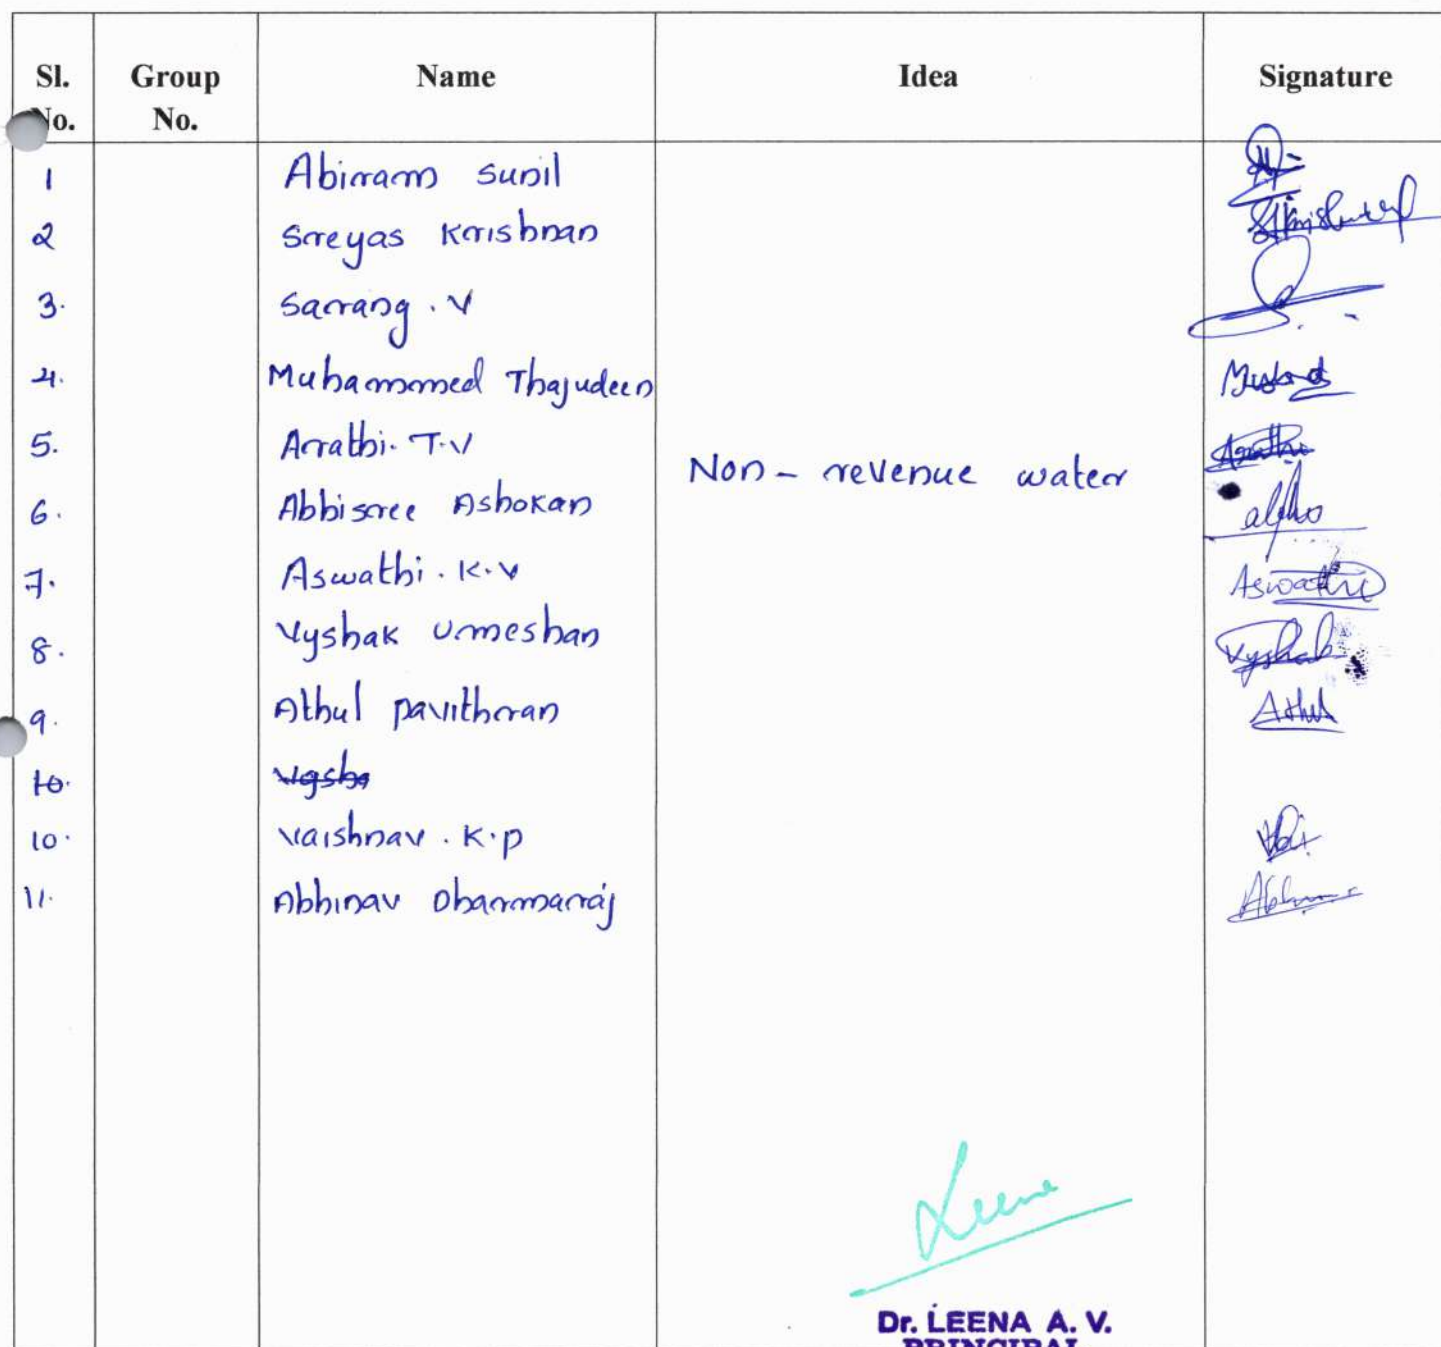 Sl. No. Group No. Name Idea Signature
1 Abiram Sunil
2 Sreyas Krishnan
3. Sarang . V
4. Muhammed Thajudeen
5. Arathi. T.V Arathi
Non - revenue water
6. Abhisree Ashokan
7. Aswathi . K.V Aswathi
8. Vyshak Umeshan Vyshak
9. Athul pavithran Athul
10.
10. Vaishnav . K.p
11. Abhinav Dharmaraj
Leena
Dr. LEENA A. V.
PRINCIPAL